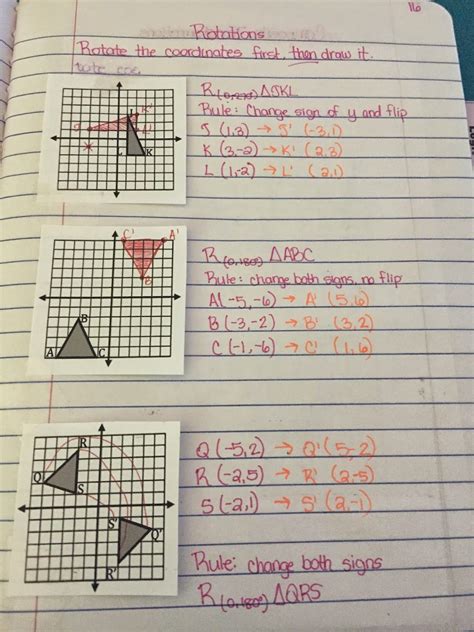 116
Rotations
Rotate the coordinates first, then draw it.
R(0,270) ΔJKL
Rule: Change sign of y and flip
J (1,3) → J' (-3,1)
K (3,-2) → K' (2,3)
L (1,-2) → L' (2,1)
J K' J L' L K
R(0,180°) ΔABC
Rule: change both signs, no flip
A(-5,-6) → A' (5,6)
B(-3,-2) → B' (3,2)
C(-1,-6) → C' (1,6)
C' A' B' B A C
Q(-5,2) → Q' (5,-2)
R(-2,5) → R' (2,-5)
S(-2,1) → S' (2,-1)
R Q S S' Q' R'
Rule: change both signs
R(0,180°) ΔQRS